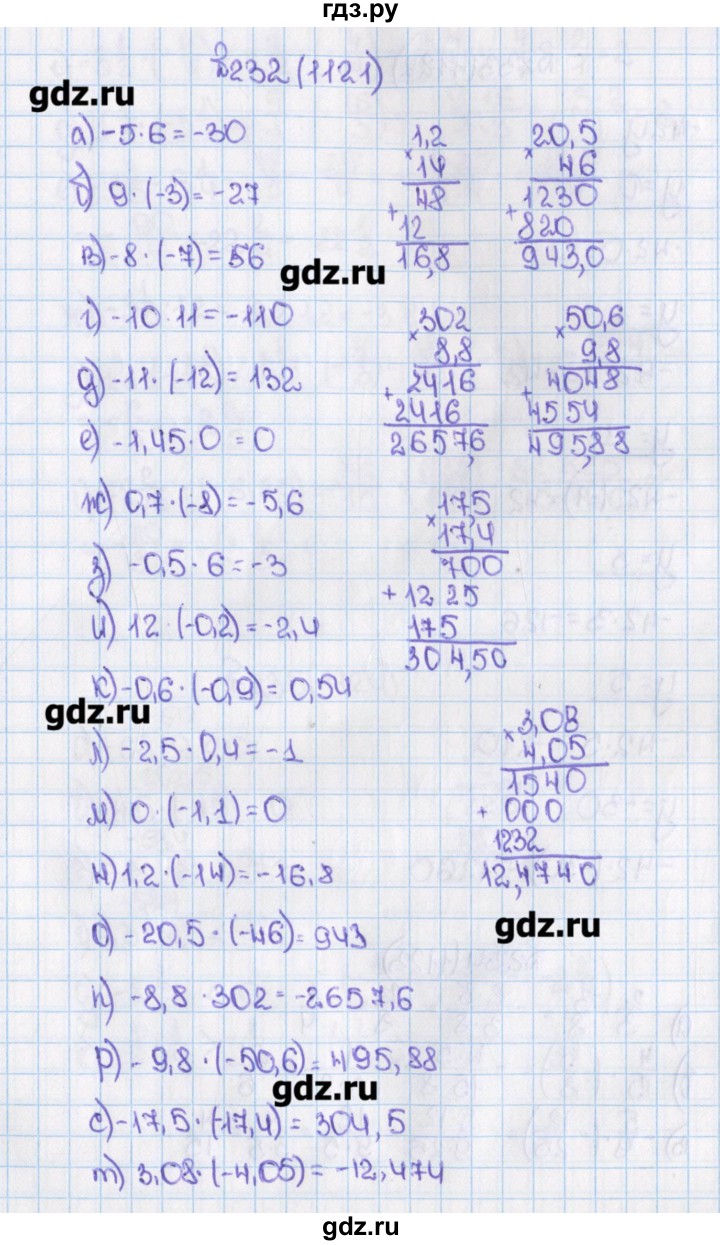 гдз.ру
№232 (1121)
gdz.ru
а) -5·6 = -30
б) 9·(-3) = -27
в) -8·(-7) = 56
1,2
× 14
48
+ 12
16,8
20,5
× 46
1230
+ 820
943,0
gdz.ru
г) -10·11 = -110
д) -11·(-12) = 132
е) -1,45·0 = 0
302
× 8,8
2416
+ 2416
2657,6
50,6
× 9,8
4048
+ 4554
495,88
ж) 0,7·(-8) = -5,6
з) -0,5·6 = -3
и) 12·(-0,2) = -2,4
к) -0,6·(-0,9) = 0,54
17,5
× 17,4
700
+ 1225
175
304,50
gdz.ru
л) -2,5·0,4 = -1
м) 0·(-1,1) = 0
н) 1,2·(-14) = -16,8
3,08
× 4,05
1540
+ 000
1232
12,4740
gdz.ru
о) -20,5·(-46) = 943
п) -8,8·302 = -2657,6
р) -9,8·(-50,6) = 495,88
gdz.ru
с) -17,5·(-17,4) = 304,5
т) 3,08·(-4,05) = -12,474
gdz.ru